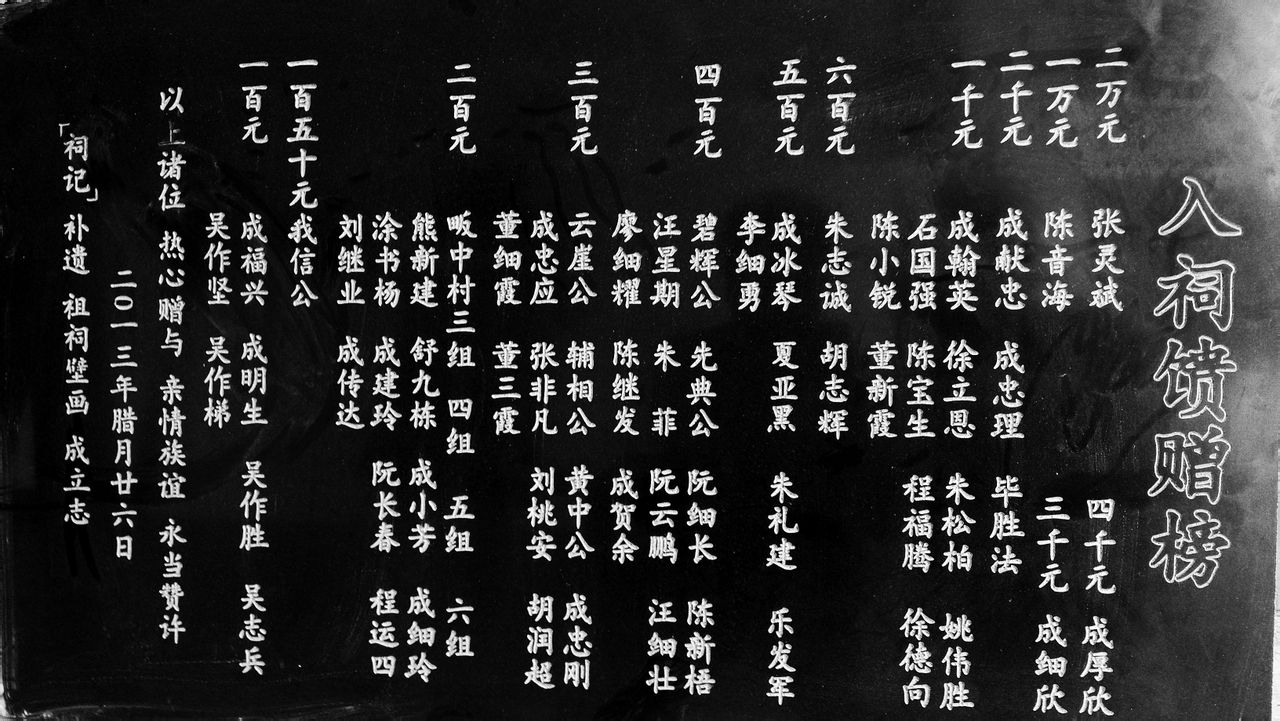 入祠馈赠榜
二万元 张灵斌 四千元 成厚欣
一万元 陈音海 三千元 成细欣
二千元 成献忠 成忠理 毕胜法
一千元 成翰英 徐立恩 朱松柏 姚伟胜
石国强 陈宝生 程福腾 徐德向
陈小锐 董新霞
六百元 朱志诚 胡志辉
五百元 成冰琴 夏亚黑 朱礼建 乐发军
李细勇
四百元 碧辉公 先典公 阮细长 陈新梧
汪星期 朱菲 阮云鹏 汪细壮
廖细耀 陈继发 成贺余
三百元 云崖公 辅相公 黄中公 成忠刚
成忠应 张非凡 刘桃安 胡润超
董细霞 董三霞
二百元 畈中村三组 四组 五组 六组
熊新建 舒九栋 成小芳 成细玲
涂书杨 成建玲 阮长春 程运四
刘继业 成传达
一百五十元 我信公
一百元 成福兴 成明生 吴作胜 吴志兵
吴作坚 吴作梯
以上诸位 热心赠与 亲情族谊 永当赞许
二〇一三年腊月廿六日
「祠记」补遗 祖祠壁画 成立志